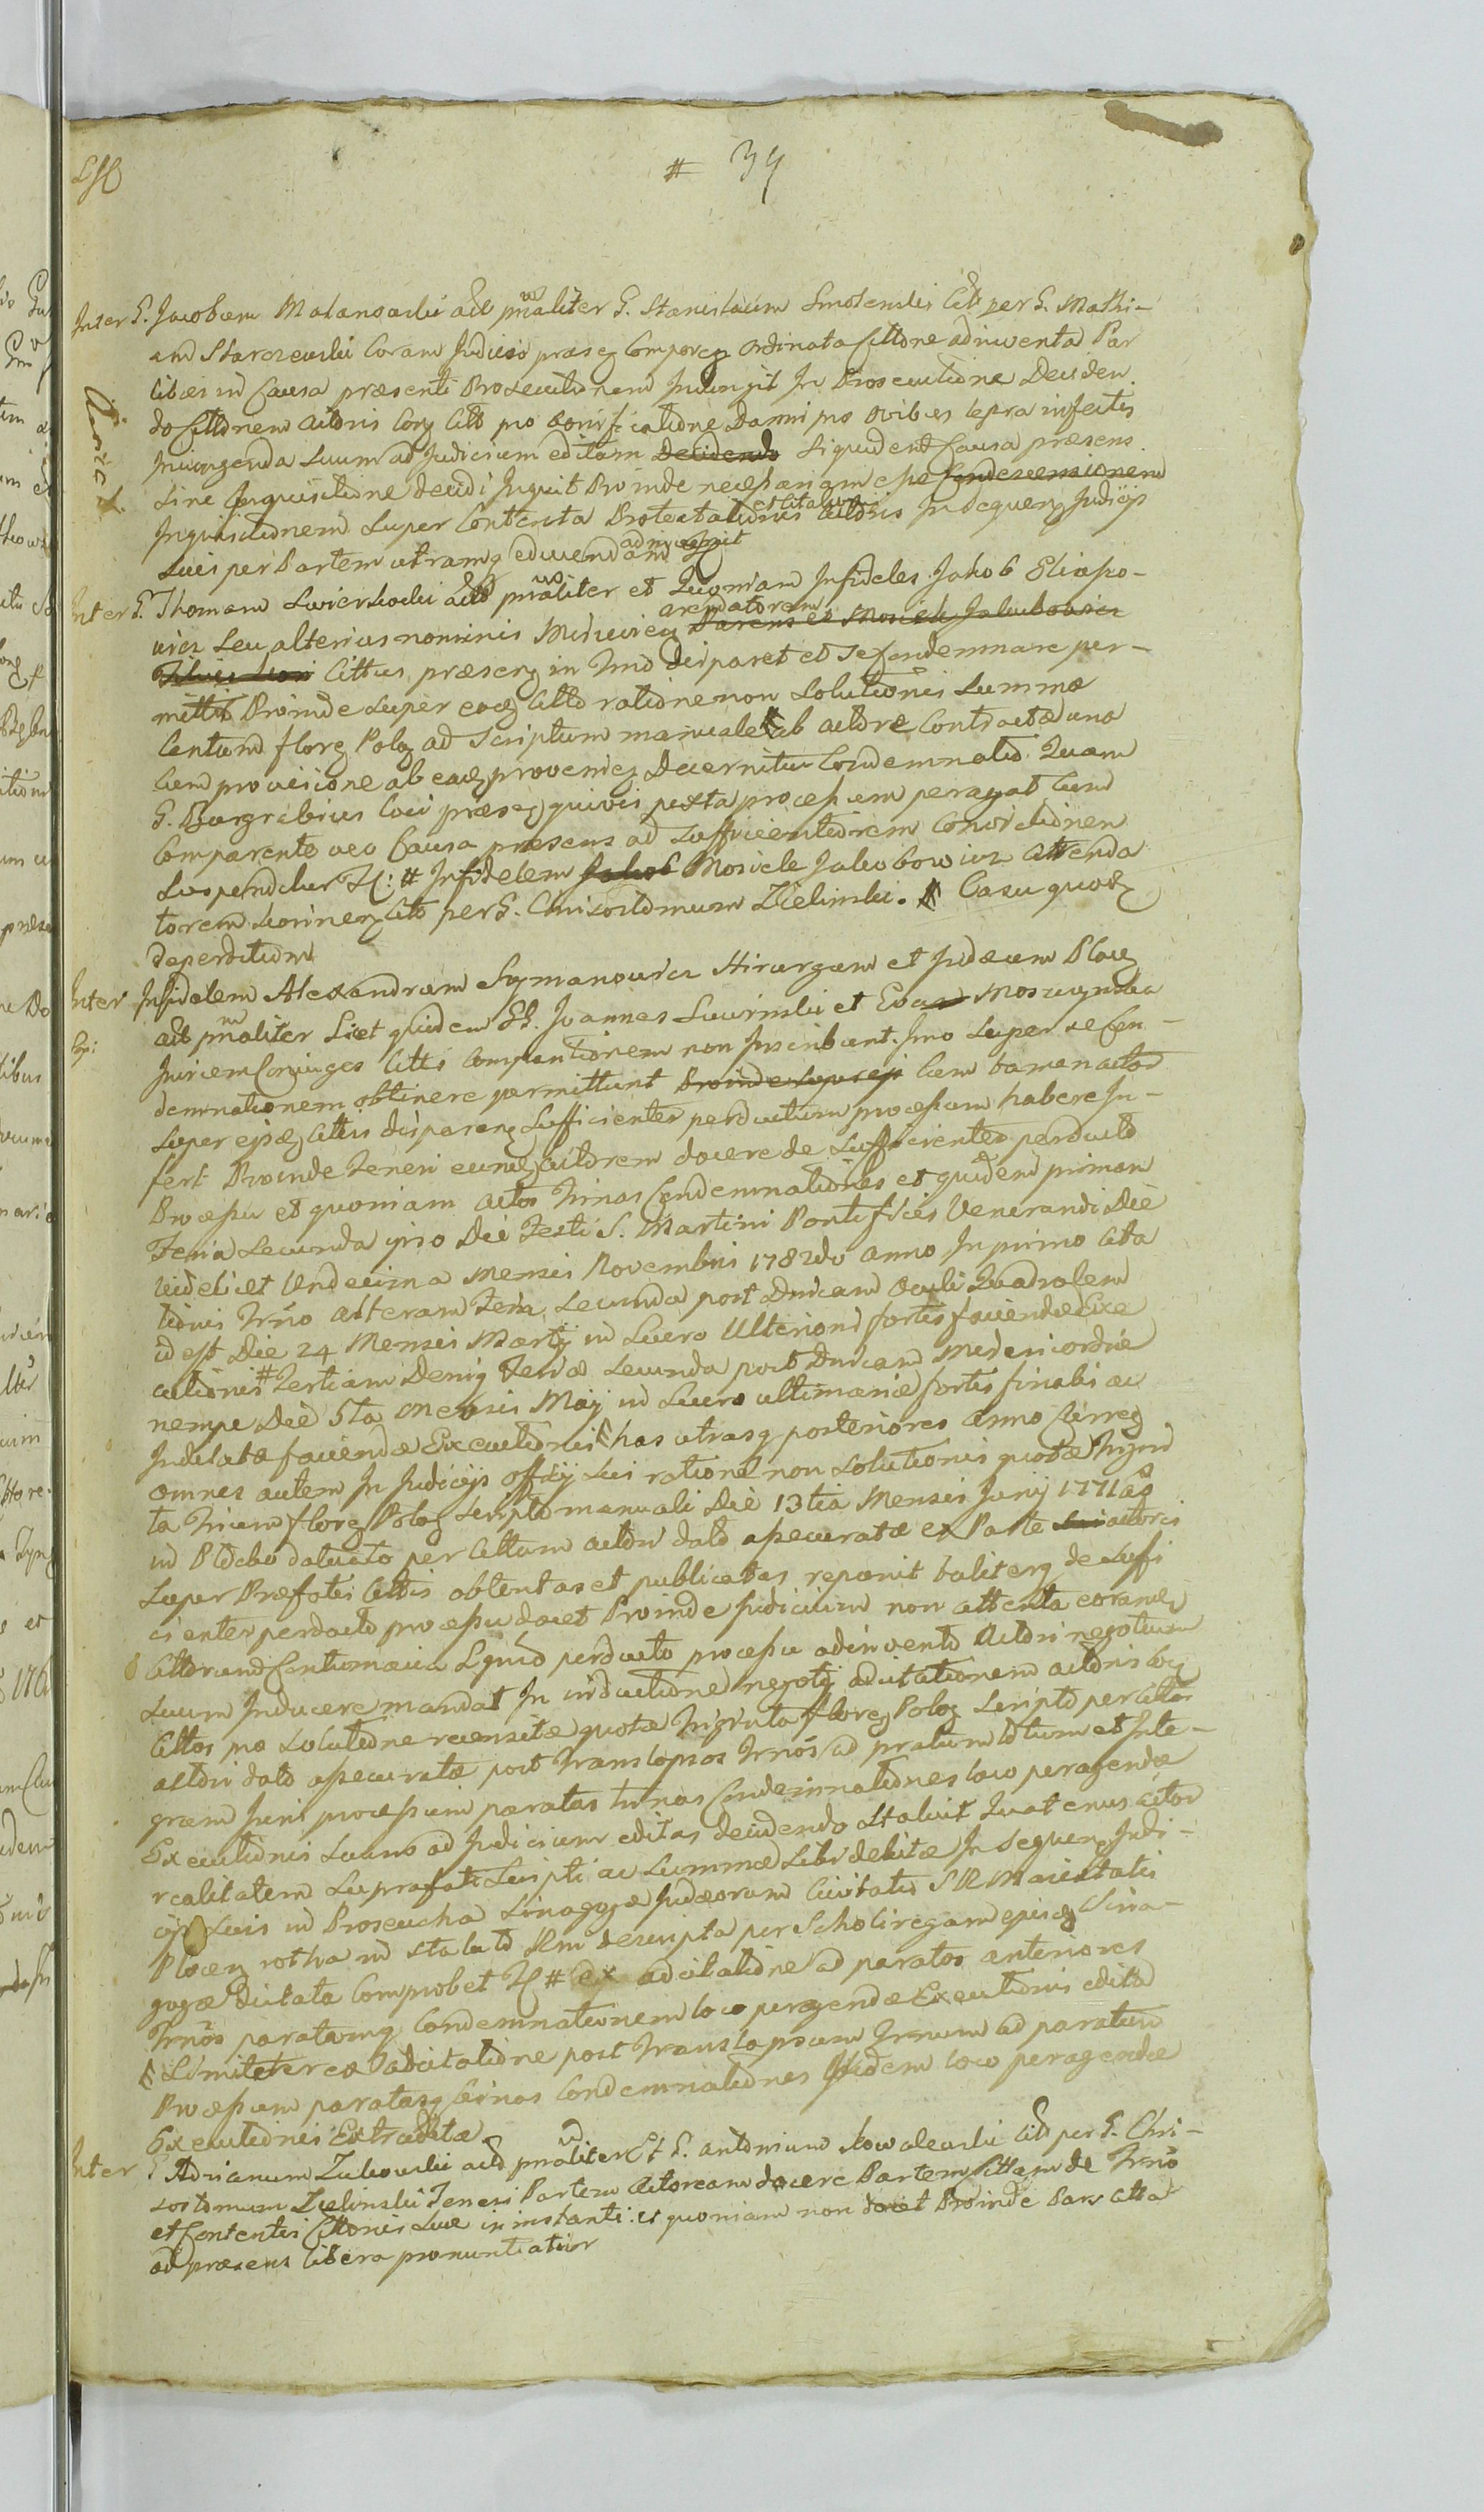 # 39
Inter G. Jacobum Malanowski act prnaliter G. Stanislaum Smolenski citt per G. Mathi-
am Starczewski Coram Judicio præseq Compareq Ordinata Cittone adinventa Par
tibus in Causa præsenti Prosecutionem Injungit In Prosecutione Deciden
do Cittonem Actoris Coq Citt pro bonificatione Damni pro ovibus lepra infectis
Iniungenda suum ad Judicium editam Decidendo Siquidem Causa præsens
sine Inquisitione decidi nequit Proinde necessariam esse Condescensionem
Inquisitionem super Contenta Protestationis et Citationis Actoris In sequenq Judicijs
suis per Partem utramq educendam adinvenit
Inter G. Thomam Swierski act prnaliter et Quoniam Infideles Jakob Eliaszo-
wicz seu alterius nominis arendatorem Parens et Mosiek Jakubowicz
Filius sui Cittus præseq in Trno disparet et se Condemnare per-
mittit Proinde super eoq Citto ratione non solutionis summæ
Centum floreq Poloq ad scriptum manuale ab actore Contractæ una
cum provisione ab eaq provenieq Decernitur Condemnatio Quam
G. Burgrabius loci præseq quivis juxta processum peragat cum
Comparente vero Causa præsens ad sufficientiorem Convictionem
suspenditur # Infidelem Jakob Mosiek Jakubowicz Arrenda
torem citt per G. Chrisostomum Zielinski. Casu quoq
deperditum
Inter Infidelem Alexandrum Szymanowicz Hirurgum et Judæum Ploceq
act prnaliter Licet quidem GG. Joannes Swirski et Eva Moszczynska
Invicem Conjuges Citti Comparitionem non Inscribunt Imo super se Con-
demnationem obtinere permittunt Proinde super ejs Cum tamen actor
super ejsdeq Cittis disparenq sufficienter perductum processum habere In-
fert Proinde Teneri eumq actorem docere de sufficienter perducto
Processu et quoniam actor Trinas Condemnationes et quidem primam
Feria secunda ipso Die Festi S. Martini Pontificis Venerandi Die
videlicet Undecima Mensis Novembris 1782do Anno In primo Cita
tionis Trno alteram Feria secunda post Dnicam Oculi Quadragesim
id est Die 24 Mensis Martij in suero Ulterioris fortis faciendæ Exe
cutionis # Tertiam Deniq Feria secunda post Dnicam Misericordiæ
nempe Die 5ta Mensis Maij in suero ultimariæ fortis finalis ac
Indilatæ faciendæ Executionis has utrasq posteriores Anno Curreq
omnes autem In Judicijs officij sui ratione non solutionis quotæ Trigin
ta Trium floreq Poloq scripto manuali Die 13tia Mensis Junij 1771 Ao
in Plocko datuato per Cittum actori dato assecuratæ ex Parte sui actoris
super Præfatis Cittis obtentas et publicatas reponit taliterq de suffi
cienter perducto processu docet Proinde Judicium non attenta eorumq
Cittorum Contumacia Lgmo perducto processu adinvento Actori negotium
suum Inducere mandat In inductione negotij adcitationem actoris Coq
Cittos pro solutione recensitæ quotæ Triginta floreq Poloq scripto per Cittos
actori dato assecuratæ post Translapsos Trnos ad paratum totum et Inte-
grum Juris processum paratas Trinas Condemnationes loco peragendæ
Executionis suum ad Judicium editas decidendo statuit Quatenus actor
realitatem suprafati scripti ac summæ sibi debitæ In sequenq Judi-
cijs suis in Proseucha Sinagogæ Judæorum Civitatis S R Maiestatis
Ploceq rotha in statuto Rni descripta per Scholiregam ejusq Sina-
gogæ dictata Comprobet # ex adcitatione ad paratos anteriores
Trnos paratamq Condemnationem loco peragendæ Executionis edita
Similiter ex adcitatione post Translapsum Trnum ad paratum
Processum paratasq binas Condemnationes itidem loco peragendæ
Executionis Extradita
Inter G Adrianum Zukowski act prnaliter Et G. Antonium Kowalewski citt per G. Chri-
sostomum Zielinski Teneri Partem Actoream docere Partem Cittam de Trno
et Contentis Cittonis suæ in instanti: et quoniam non docet Proinde Pars citta
ad præsens libera pronuntiatur